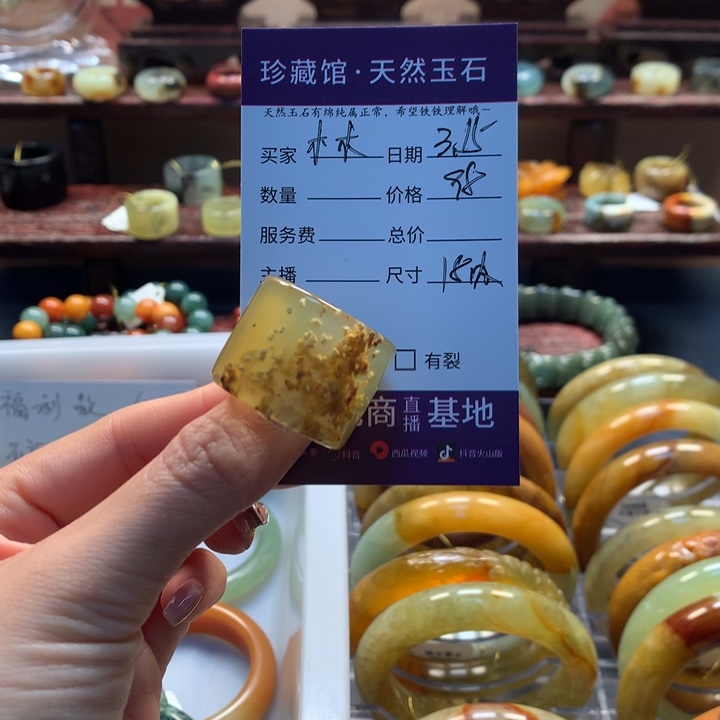 珍藏馆·天然玉石
天然玉石有绵纯属正常，希望铁铁理解哦~
买家 水水 日期 3.15
数量 价格 98
服务费 总价
主播 尺寸 18
有裂
商直播基地
抖音 西瓜视频 抖音火山版
福利款